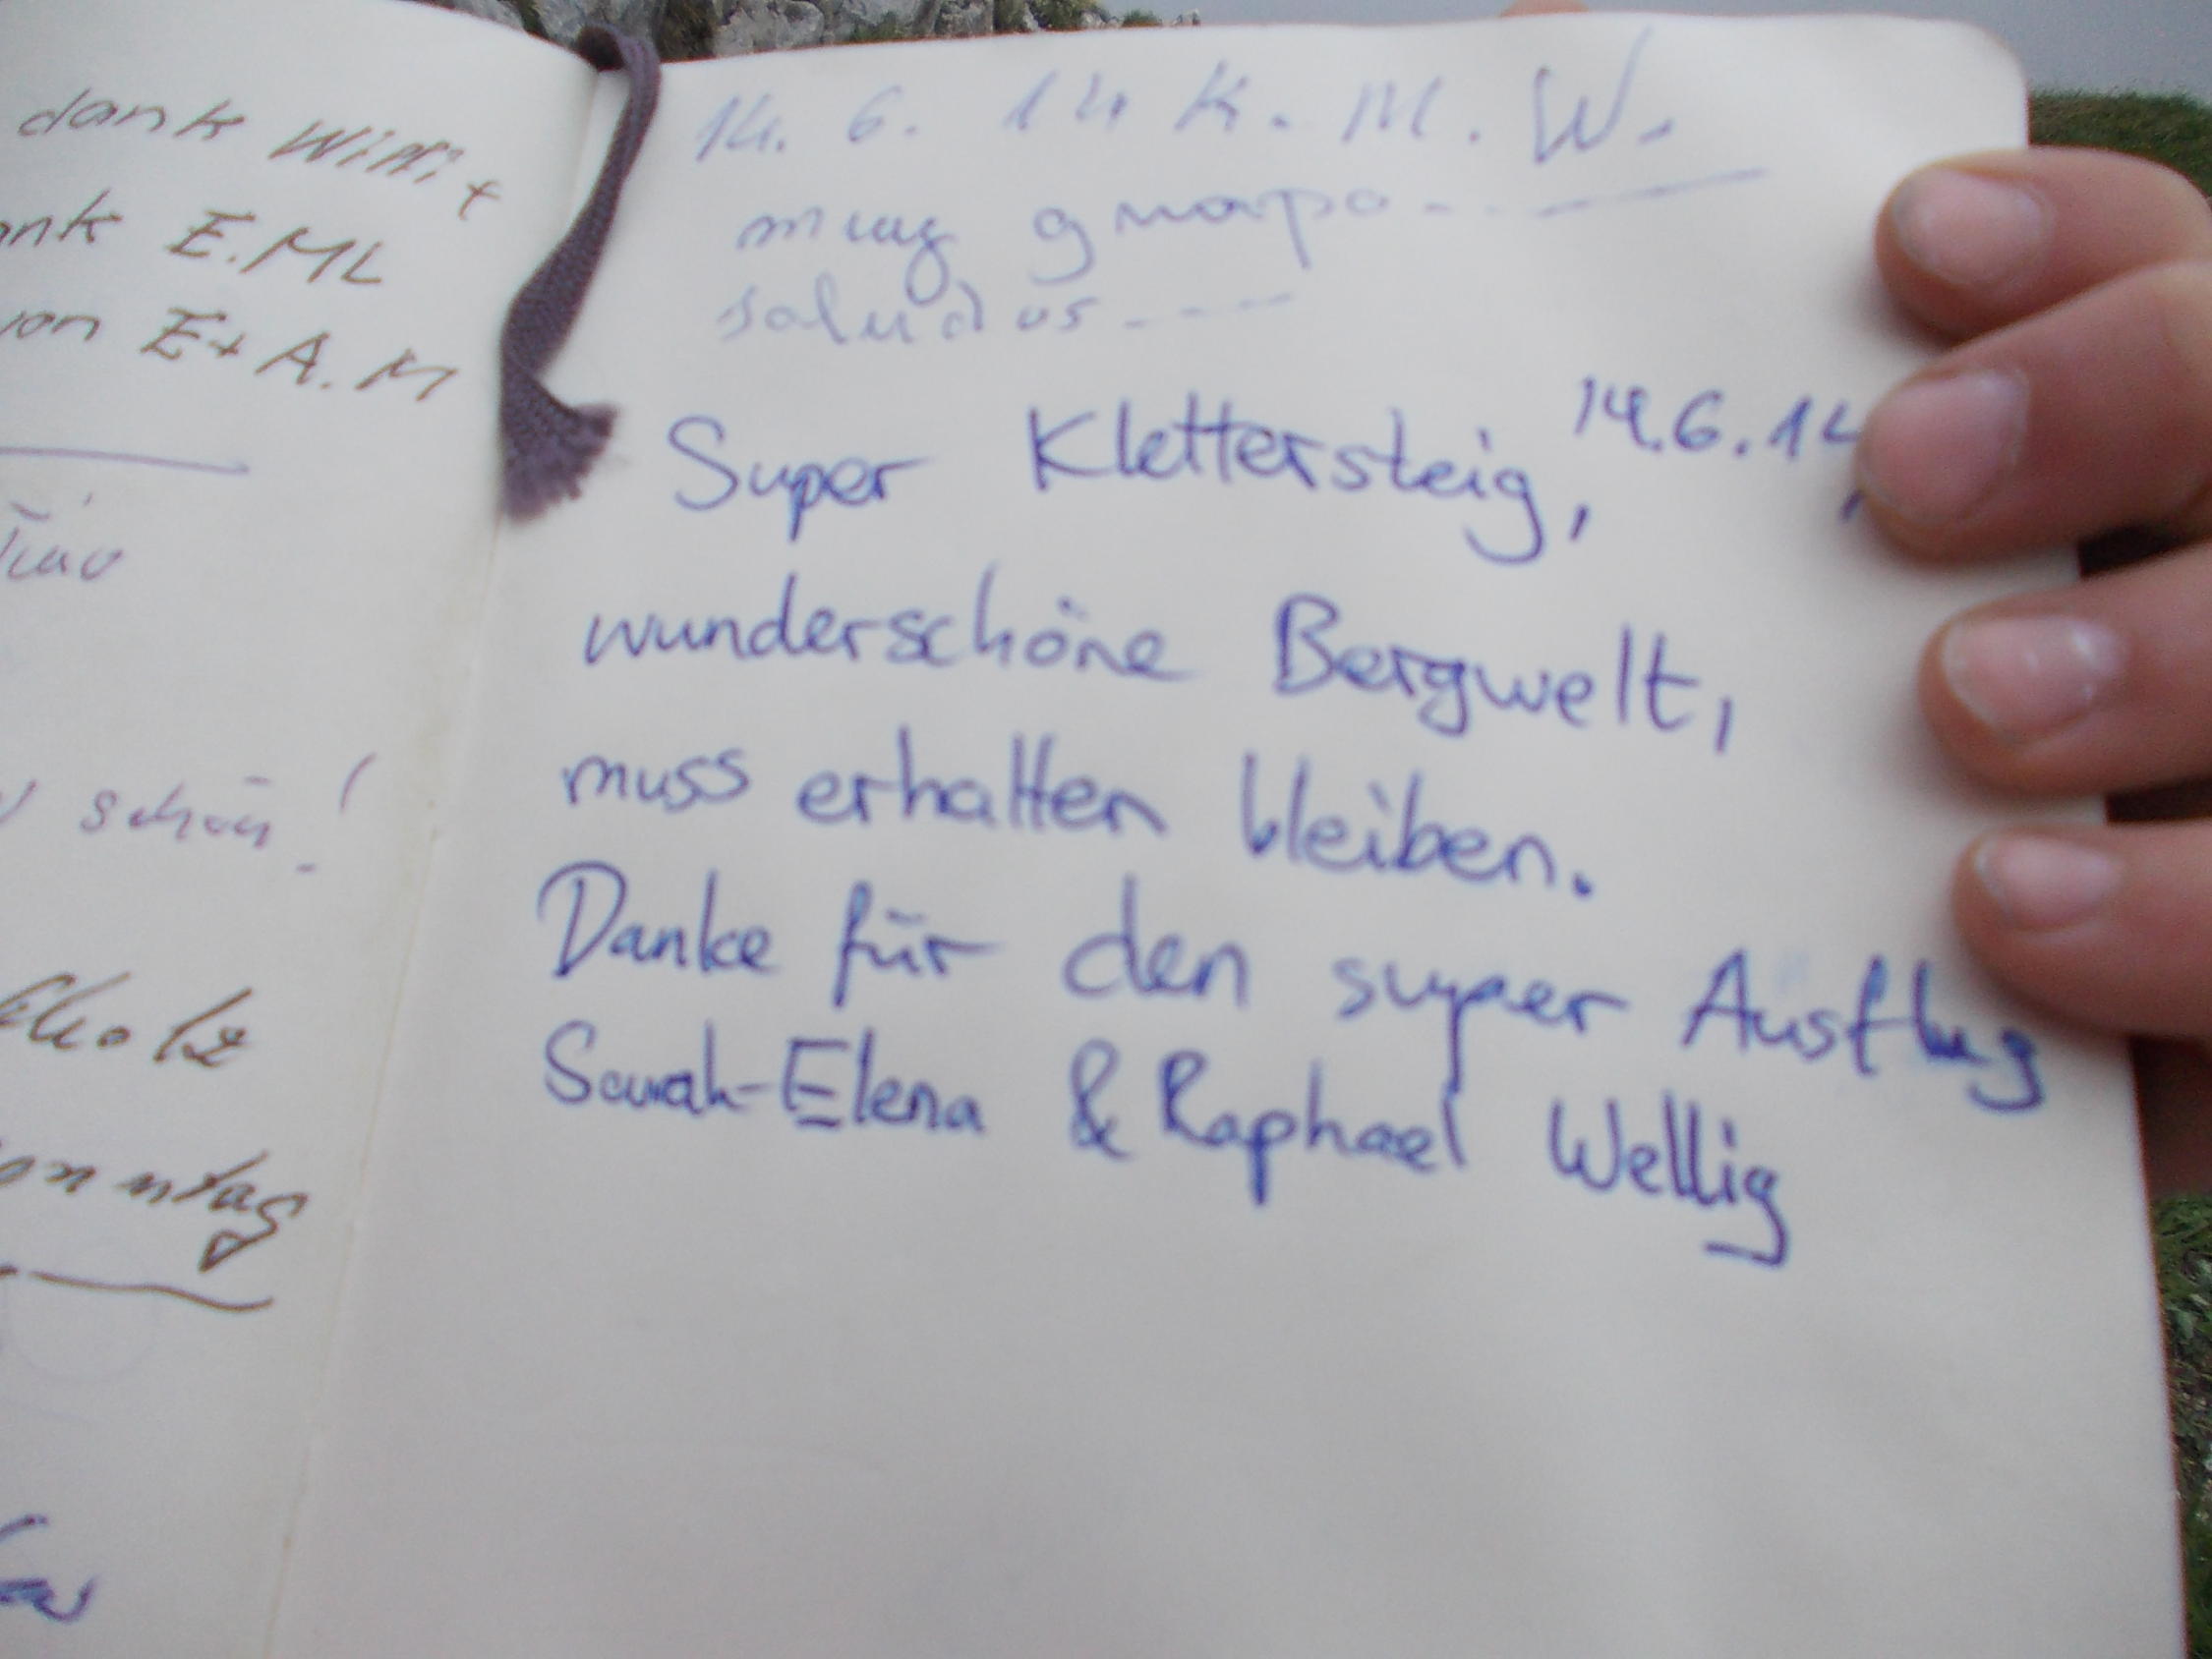 dank Willi +
ank E.ML
von E+ A.M
schön!
onntag
14. 6. 14 K. M. W.
muy guapo
saludos
Super Klettersteig, 14.6.14
wunderschöne Bergwelt,
muss erhalten bleiben.
Danke für den super Ausflug
Sarah-Elena & Raphael Wellig